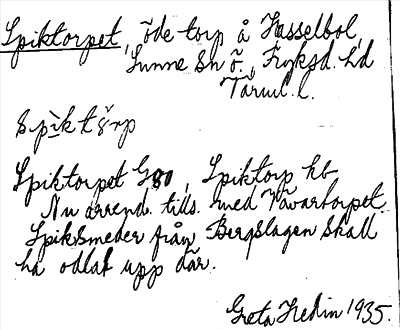 Spiktorpet, öde torp å Hasselbol,
Sunne sn ö., Fryksd. hd
Värml. l.
Spiktorpet G80, Spiktorp hb
Nu arrend. tills. med Vävartorpet
Spiksmeder från Bergslagen skall
ha odlat upp där.
Greta Hedin 1935.